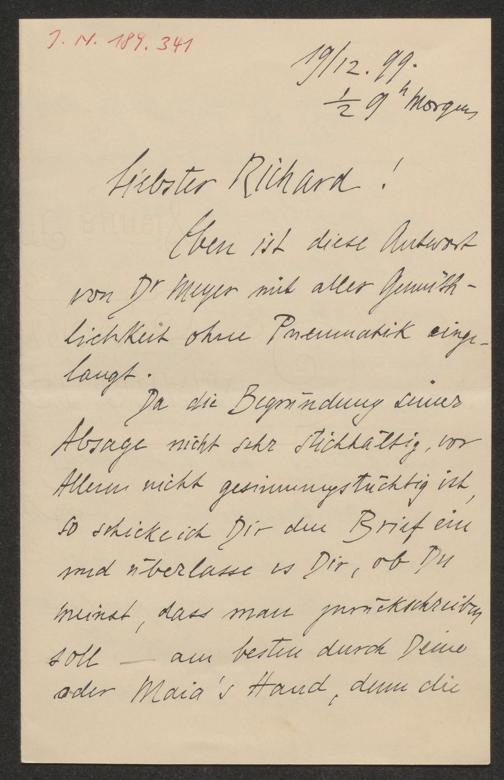 J. N. 189.341
19/12.99.
½ 9 h Morgens
Liebster Richard!
Eben ist diese Antwort
von Dr Meyer mit aller Gemüth-
lichkeit ohne Pneumatik einge-
langt.
Da die Begründung seiner
Absage nicht sehr stichhältig, vor
Allem nicht gesinnungstüchtig ist,
so schicke ich Dir den Brief ein
und überlasse es Dir, ob Du
meinst, dass man zurückschreiben
soll — am besten durch Deine
oder Maia's Hand, denn die